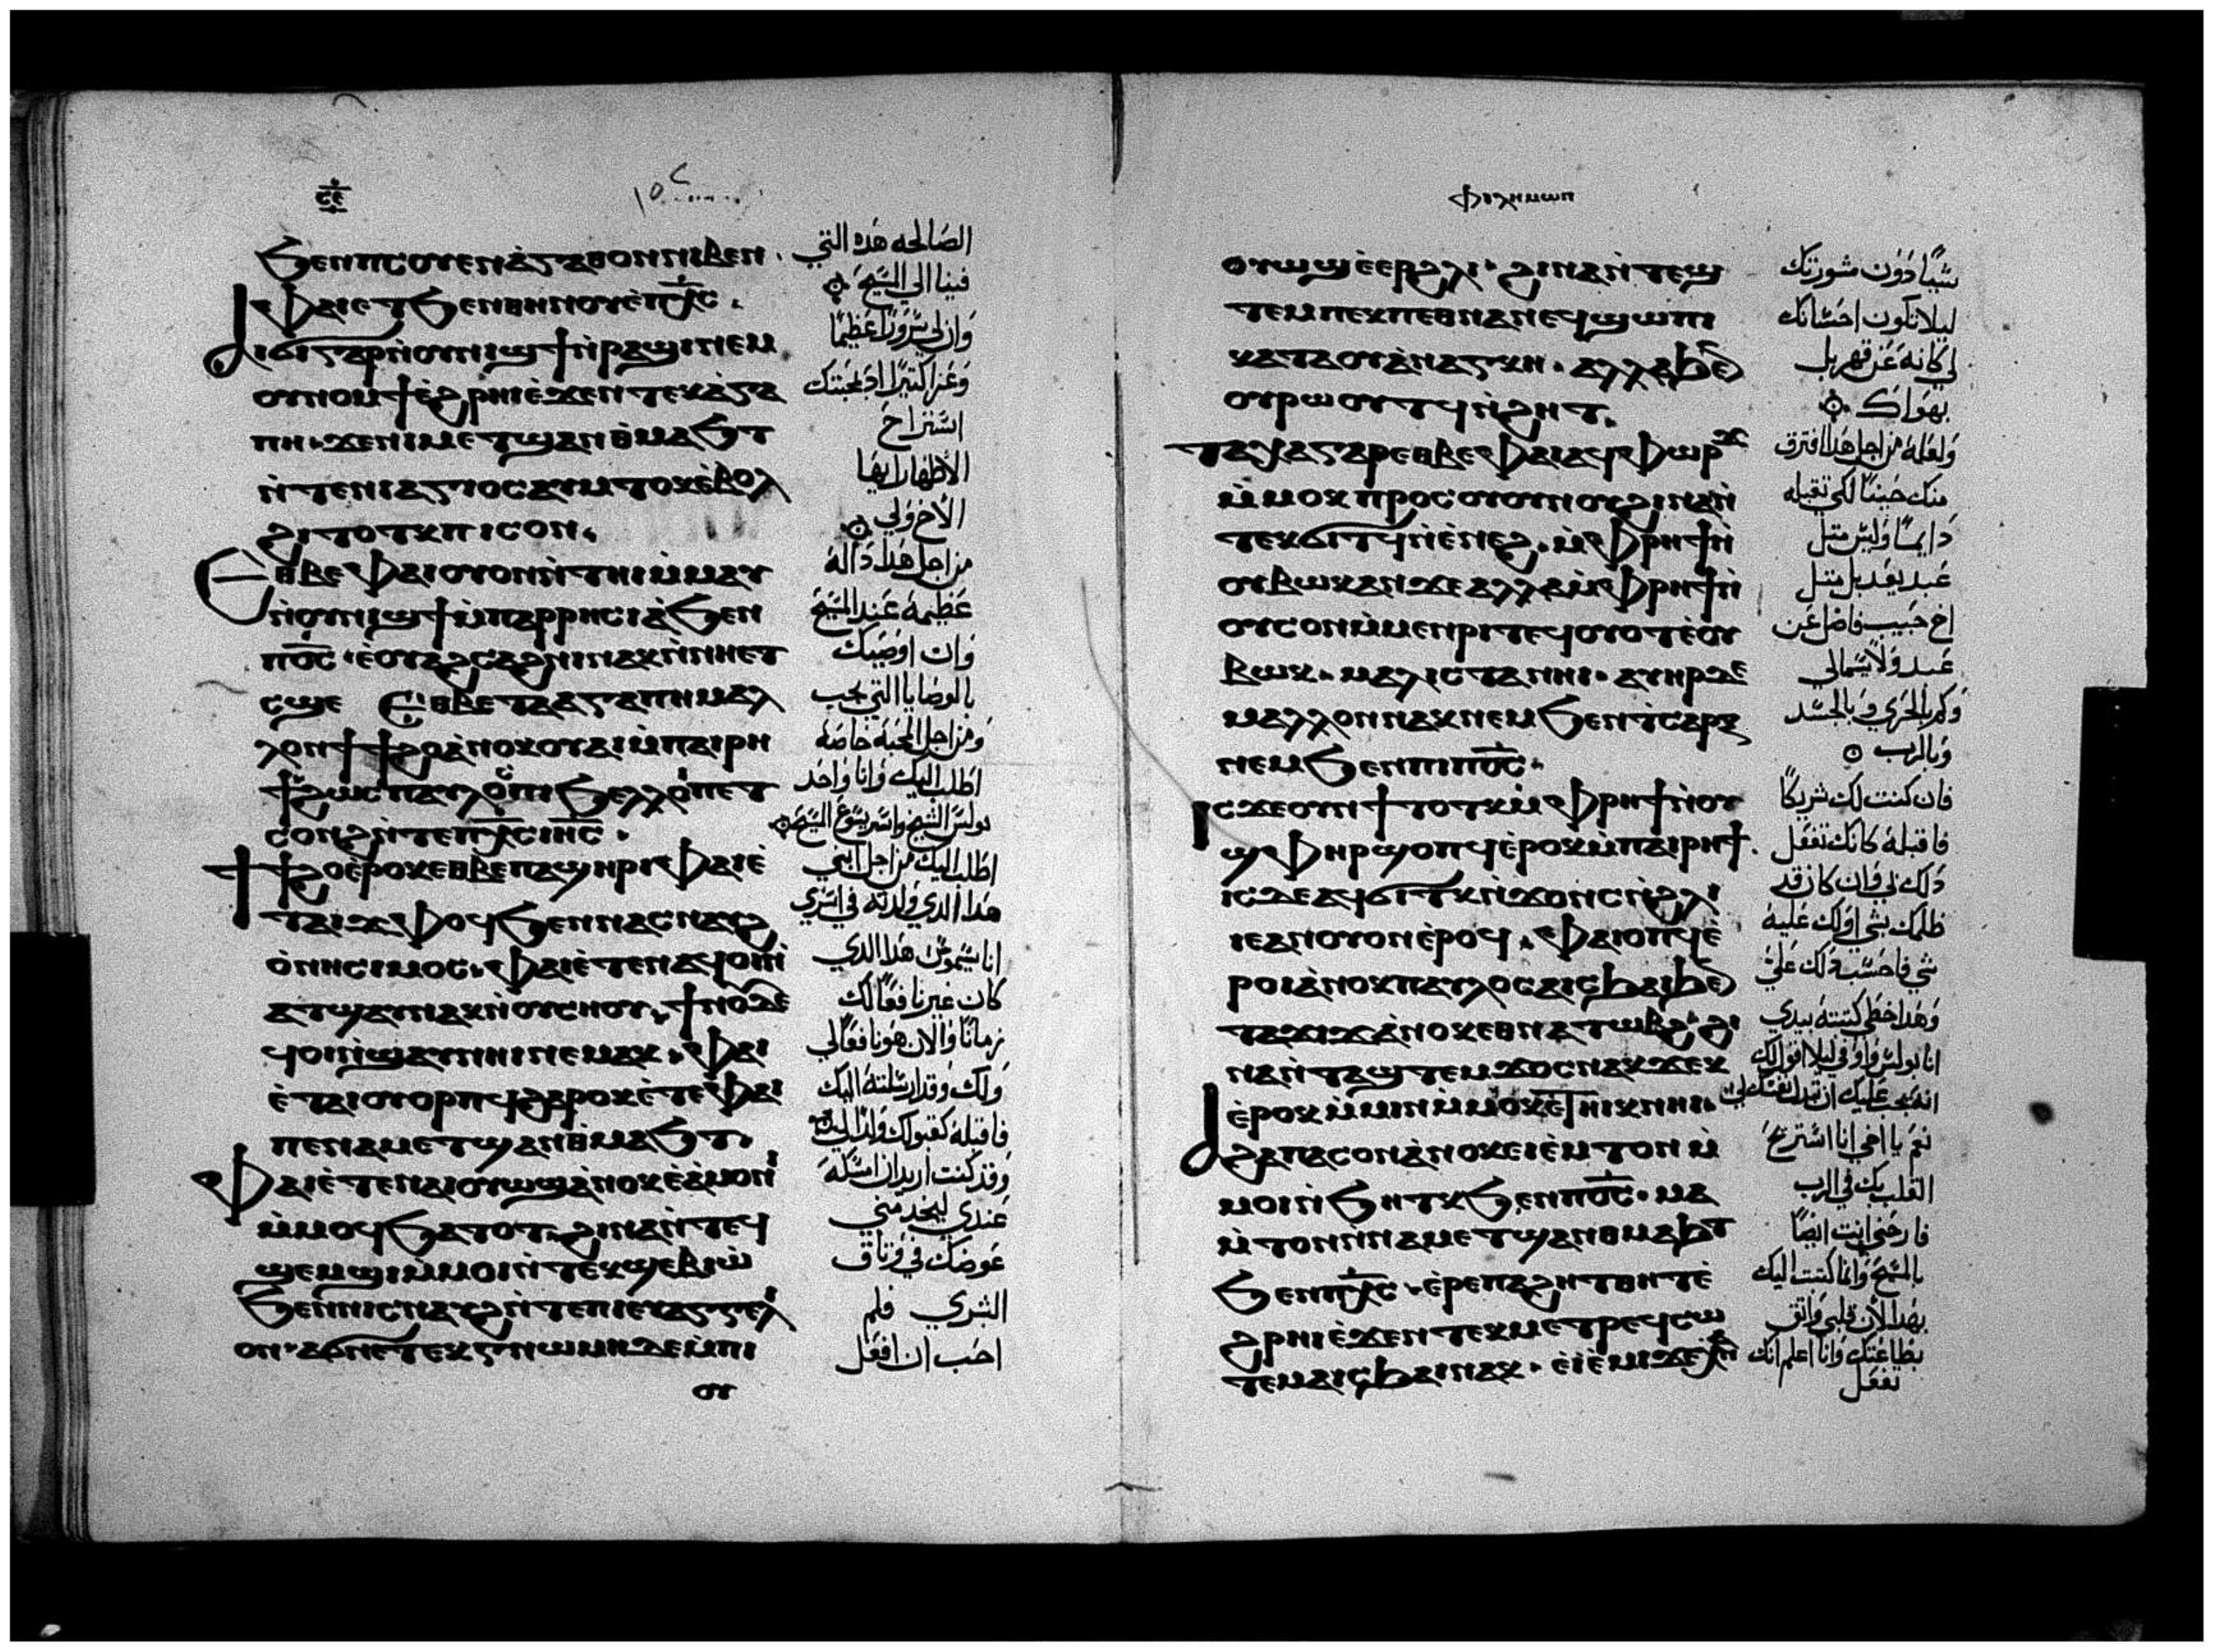 ϧⲉⲛⲡⲥⲟⲩⲉⲛⲁ̀ⲅⲁⲑⲟⲛⲛⲓⲃⲉⲛ
ⲫⲁⲓⲉⲧϧⲉⲛⲑⲏⲛⲟⲩⲉ̀ⲡⲭ̅ⲥ̅.
ⲁⲓϭⲓⲅⲁⲣⲛ̀ⲟⲩⲛⲓϣϯⲛ̀ⲣⲁϣⲓⲛⲉⲙ
ⲟⲩⲛⲟⲙϯⲉ̀ϩⲣⲏⲓⲉ̀ϫⲉⲛⲧⲉⲕⲁ̀ⲅⲁ
ⲡⲏ. ϫⲉⲛⲓⲙⲉⲧϣⲁⲛⲑ̀ⲙⲁϧⲧ
ⲛ̀ⲧⲉⲛⲓⲁⲅⲓⲟⲥⲁⲩⲙ̀ⲧⲟⲛⲉ̀ⲃⲟⲗ
ϩⲓⲧⲟⲧⲕⲡⲓⲥⲟⲛ.
Ⲉⲑⲃⲉⲫⲁⲓⲟⲩⲟⲛⲛ̀ⲧⲏⲓⲙ̀ⲙⲁⲩ
ⲛ̀ⲟⲩⲛⲓϣϯⲙ̀ⲡⲁⲣⲣⲏⲥⲓⲁ̀ϧⲉⲛ
ⲡⲟ̅ⲥ̅ ⲉ̀ⲟⲩⲁϩⲥⲁϩⲛⲓⲛⲁⲕⲛ̀ⲛⲏⲉⲧ
ⲥϣⲉ Ⲉⲑⲃⲉⲧⲁⲁⲅⲁⲡⲏⲙⲁⲗ
ⲗⲟⲛϯϯϩⲟⲁ̀ⲛⲟⲕⲟⲩⲁⲓⲙ̀ⲡⲁⲓⲣⲏ
ϯϩⲱⲥⲡⲁⲩⲗⲟⲥⲡⲓϧⲉⲗⲗⲟⲡⲉⲧ
ⲥⲟⲛϩⲛ̀ⲧⲉⲡⲭ̅ⲥ̅ⲓⲏ̅ⲥ̅.
ϯϯϩⲟⲉ̀ⲣⲟⲕⲉⲑⲃⲉⲡⲁϣⲏⲣⲓⲫⲁⲓⲉ̀
ⲧⲁⲓϫⲫⲟϥϧⲉⲛⲛⲁⲥⲛⲁⲩϩ
ⲟ̀ⲛⲏⲥⲓⲙⲟⲥ. ⲫⲁⲓⲉ̀ⲧⲉⲛⲁϥⲟⲓⲛ̀
ⲁⲧϣⲁⲩⲛⲁⲕⲛ̀ⲟⲩⲥⲏⲟⲩ. ϯⲛⲟⲩⲇⲉ
ϥⲟⲓⲛ̀ϣⲁⲩⲛⲏⲓⲛⲉⲙⲁⲕ. ⲫⲁⲓ
ⲉ̀ⲧⲁⲓⲟⲩⲟⲣⲡϥϩⲁⲣⲟⲕⲉ̀ⲧⲉⲫⲁⲓ
ⲡⲉⲛⲁⲙⲉⲧϣⲁⲛⲑ̀ⲙⲁϧⲧ.
Ⲫⲁⲓⲉ̀ⲧⲉⲛⲁⲓⲟⲩⲱϣⲁ̀ⲛⲟⲕⲉ̀ⲁ̀ⲙⲟⲛⲓ
ⲙ̀ⲙⲟϥϧⲁⲧⲟⲧ ϩⲓⲛⲁⲛ̀ⲧⲉϥ
ϣⲉⲙϣⲓⲙ̀ⲙⲟⲓⲛ̀ⲧⲉⲕϣⲉⲃⲓⲱ̀
ϧⲉⲛⲛⲓⲥⲛⲁⲩϩⲛ̀ⲧⲉⲡⲓⲉⲩⲁⲅⲅⲉⲗⲓ
ⲟⲛ. ⲁϭⲛⲉⲧⲉⲕⲅⲛⲱⲙⲏⲇⲉⲙ̀ⲡⲓ
ⲟⲩ
الصالحه هذه التي
فينا الي المسيح
وان لي سرورا عظيما
وعزا كثيرا اذ لمحبتك
استراح
الاطهار ايها
الاخ ولي
من اجل هذا دالة
عظيمة عند المسيح
وان اوصيك
بالوصايا التي تجب
ومن اجل المحبة خاصة
اطلب اليك وانا واحد
بولس الشيخ واسير يسوع المسيح
اطلب اليك من اجل ابني
هذا الذي ولدته في اسري
اناسيموس هذا الذي
كان غير نافعا لك
زمانا والان هو نافعا لي
ولك وقد ارسلته اليك
فاقبله كقبولك
وقد كنت اريد ان امسكه
عندي ليخدمني
عوضك في وثاق
البشري فلم
احب ان افعل
ⲫⲓⲗⲏⲙⲱⲛ
ⲟⲩⲱϣⲉ̀ⲉⲣϩⲗⲓ ϩⲓⲛⲁⲛ̀ⲧⲉϣ
ⲧⲉⲙⲡⲉⲕⲡⲉⲑⲛⲁⲛⲉϥϣⲱⲡⲓ
ⲕⲁⲧⲁⲟⲩⲁ̀ⲛⲁⲅⲕⲏ. ⲁⲗⲗⲁϧⲉⲛ
ⲟⲩⲣⲱⲟⲩⲧϥⲛ̀ϩⲏⲧ.
ⲧⲁⲭⲁⲅⲁⲣⲉⲑⲃⲉⲫⲁⲓⲁϥⲫⲱⲣϫ
ⲙ̀ⲙⲟⲕⲡⲣⲟⲥⲟⲩⲟⲩⲛⲟⲩϩⲓⲛⲁⲛ̀
ⲧⲉⲕϭⲓⲧϥⲛ̀ⲉ̀ⲛⲉϩ. ⲙ̀ⲫⲣⲏϯⲛ̀
ⲟⲩⲃⲱⲕⲁⲛϫⲉⲁⲗⲗⲁⲙ̀ⲫⲣⲏϯⲛ̀
ⲟⲩⲥⲟⲛⲙ̀ⲙⲉⲛⲣⲓⲧⲉϥⲟⲩⲟⲧⲉ̀ⲟⲩ
ⲃⲱⲕ. ⲙⲁⲗⲓⲥⲧⲁⲛⲏⲓ. ⲁⲩⲏⲣⲇⲉ
ⲙⲁⲗⲗⲟⲛⲛⲁⲕⲛⲉⲙϧⲉⲛⲧ̀ⲥⲁⲣⲝ
ⲛⲉⲙϧⲉⲛⲡⲓⲡⲟ̅ⲥ̅.
Ⲓⲥϫⲉⲟⲩⲛϯⲧⲟⲧⲕⲙ̀ⲫⲣⲏϯⲛ̀ⲟⲩ
ϣⲫⲏⲣϣⲟⲡϥⲉ̀ⲣⲟⲕⲙ̀ⲡⲁⲓⲣⲏϯ.
ⲓⲥϫⲉⲁϥϭⲓⲧⲕⲛ̀ϫⲟⲛⲥⲛ̀ϩⲗⲓ
ⲓⲉⲁⲛⲟⲩⲟⲛⲉ̀ⲣⲟϥ. ⲫⲁⲓⲟⲡϥⲉ̀
ⲣⲟⲓⲁ̀ⲛⲟⲕⲡⲁⲩⲗⲟⲥⲁⲓⲥϧⲁⲓϧⲉⲛ
ⲧⲁϫⲓϫⲁ̀ⲛⲟⲕⲉⲑⲛⲁⲧⲱⲃϩ ϩⲓ
ⲛⲁⲛ̀ⲧⲁϣⲧⲉⲙϫⲟⲥⲛⲁⲕϫⲉⲕ
ⲉ̀ⲣⲟⲕⲙ̀ⲙⲓⲛⲙ̀ⲙⲟⲕⲉ̀ⲧⲏⲓⲕⲛⲏⲓ.
ⲁϩⲁⲡⲁⲥⲟⲛⲁ̀ⲛⲟⲕⲉⲓⲉ̀ⲙⲧⲟⲛⲙ̀
ⲙⲟⲓⲛ̀ϧⲏⲧⲕϧⲉⲛⲡⲟ̅ⲥ̅. ⲙⲁ
ⲙ̀ⲧⲟⲛⲛ̀ⲛⲁⲙⲉⲧϣⲁⲛⲑⲙⲁϧⲧ
ϧⲉⲛⲡⲭ̅ⲥ̅. ⲉ̀ⲣⲉⲡⲁϩⲏⲧⲑⲏⲧⲉ̀
ϩⲣⲏⲓⲉ̀ϫⲉⲛⲧⲉⲕⲙⲉⲧⲣⲉϥⲥⲱ
ⲧⲉⲙⲁⲓⲥϧⲁⲓⲛⲁⲕ. ⲉ̀ⲓⲉ̀ⲙⲓϫⲉⲭⲛ
شيا دون مشورتك
ليلا تكون احسانك
لي كانه عن قهر بل
بهواك
ولعله من اجل هذا افترق
منك حينا لكي تقبله
دايما وليس مثل
عبد بعد بل مثل
اخ حبيب فاضل عن
عبد ولا سيما لي
وكم بالحري وبالجسد
وبالرب
فان كنت لك شريكا
فاقبله كانك تفعل
ذلك بي وان كان قد
ظلمك بشي او لك عليه
شي فاحسب ذلك علي
وهذا خطي كتبته بيدي
انا بولس واوفي ليلا اقول لك
انه يجب عليك ان
نعم يا اخي انا استريح
القلب بك في الرب
فارحني انت ايضا
بالمسيح وانا كتبت اليك
بهذا لان قلبي واثق
بطاعتك وانا اعلم انك
تفعل